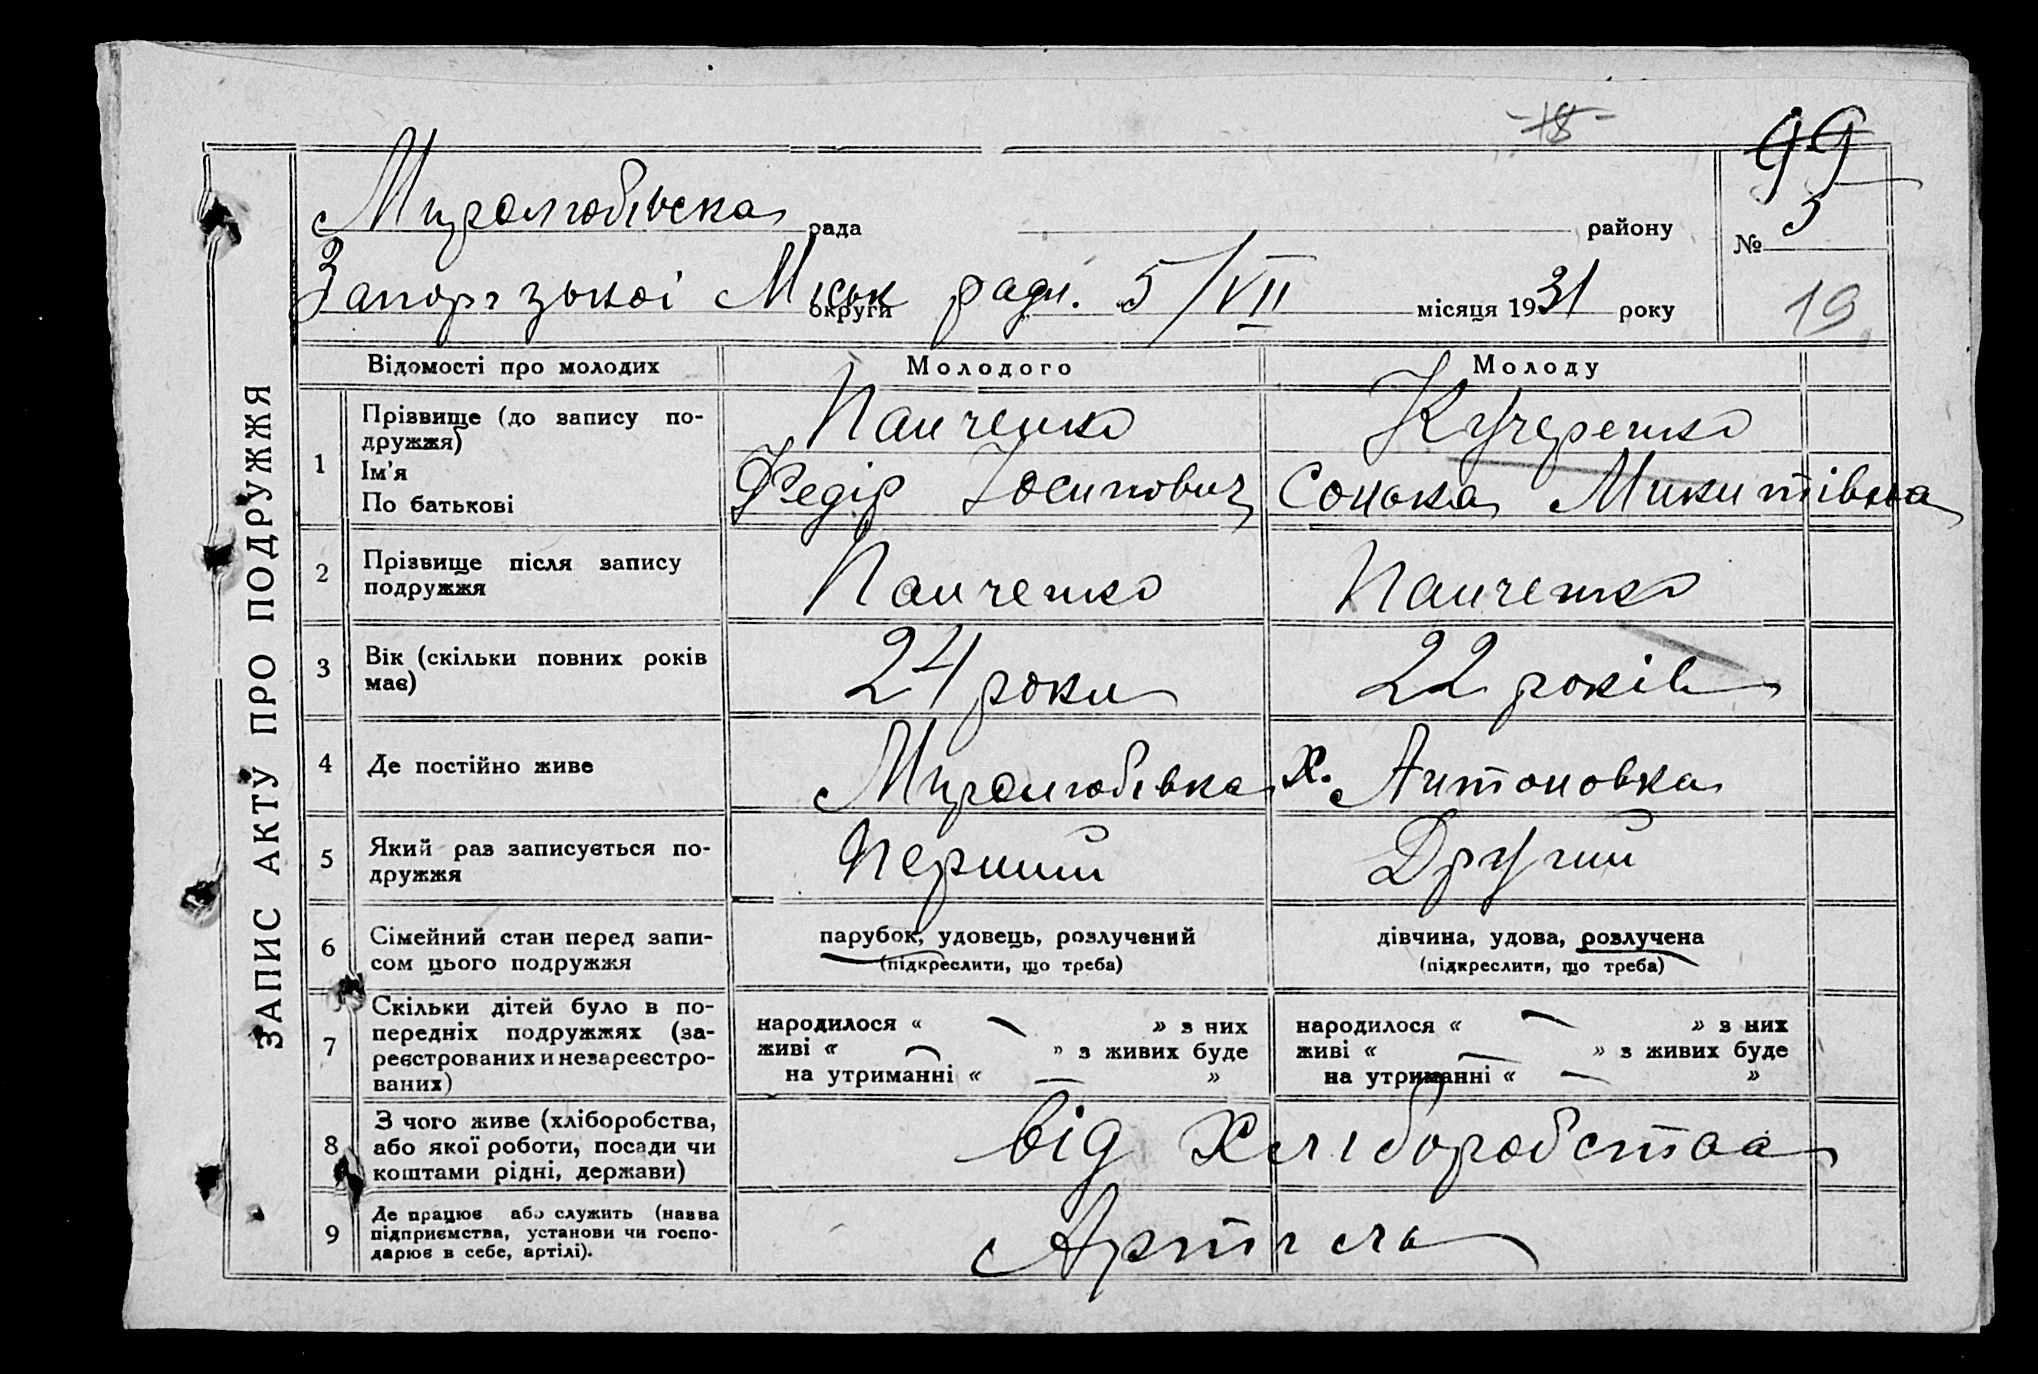 -18-
99
ЗАПИС АКТУ ПРО ПОДРУЖЖЯ
Миролюбівська рада району
№ 5
Запорізької Міськ ради. округи 5/VII місяця 1931 року
19
Відомості про молодих Молодого Молоду
1 Прізвище (до запису по-
дружжя)
Панченко Кучеренко
Ім'я
По батькові
Федір Йосипович Сонька Микитівна
2 Прізвище після запису
подружжя
Панченко Панченко
3 Вік (скільки повних років
має)
24 роки 22 років
4 Де постійно живе Миролюбівка х. Антоновка
5 Який раз записується по-
дружжя
Перший Другий
6 Сімейний стан перед запи-
сом цього подружжя
парубок, удовець, розлучений дівчина, удова, розлучена
(підкреслити, що треба) (підкреслити, що треба)
7 Скільки дітей було в по-
передніх подружжях (за-
реєстрованих и незареєстро-
ваних)
народилося « — » з них народилося « — » з них
живі « — » з живих буде живі « — » з живих буде
на утриманні « — » на утриманні « — »
8 З чого живе (хліборобства,
або якої роботи, посади чи
коштами рідні, держави)
від Хліборобства
9 Де працює або служить (назва
підприємства, установи чи госпо-
дарює в себе, артілі).
Артіль